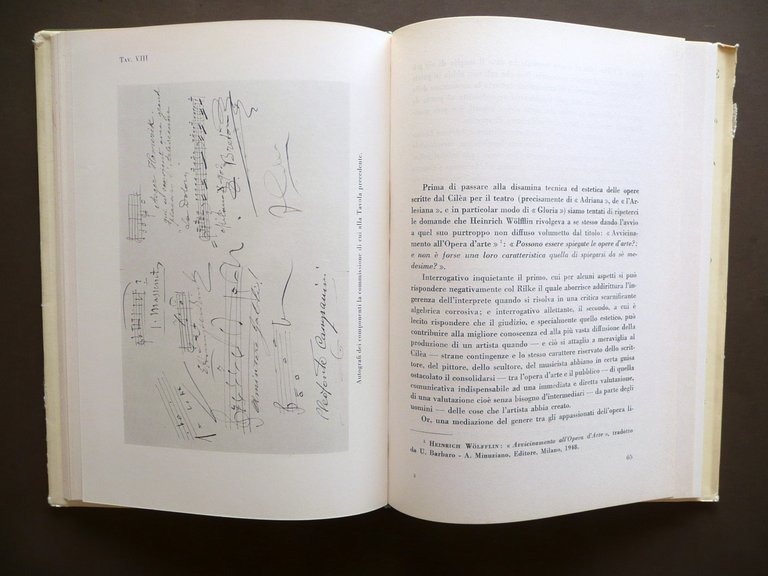 TAV. VIII
Autografi dei componenti la commissione di cui alla Tavola precedente.
I Mascagni
La Dolores
Breton
Cleofonte Campanini
Prima di passare alla disamina tecnica ed estetica delle opere
scritte dal Cilèa per il teatro (precisamente di « Adriana », de « l'Ar-
lesiana », e in particolar modo di « Gloria ») siamo tentati di ripeterci
le domande che Heinrich Wölfflin rivolgeva a se stesso dando l'avvio
a quel suo purtroppo non diffuso volumetto dal titolo: « Avvicina-
mento all'Opera d'arte » ¹: « Possono essere spiegate le opere d'arte?:
e non è forse una loro caratteristica quella di spiegarsi da sè me-
desime? ».
Interrogativo inquietante il primo, cui per alcuni aspetti si può
rispondere negativamente col Rilke il quale aborrisce addirittura l'in-
gerenza dell'interprete quando si risolva in una critica scarnificante
algebrica corrosiva; e interrogativo allettante, il secondo, a cui è
lecito rispondere che il giudizio, e specialmente quello estetico, può
contribuire alla migliore conoscenza ed alla più vasta diffusione della
produzione di un artista quando — e ciò si attaglia a meraviglia al
Cilèa — strane contingenze e lo stesso carattere riservato dello scrit-
tore, del pittore, dello scultore, del musicista abbiano in certa guisa
ostacolato il consolidarsi — tra l'opera d'arte e il pubblico — di quella
comunicativa indispensabile ad una immediata e diretta valutazione,
di una valutazione cioè senza bisogno d'intermediari — da parte degli
uomini — delle cose che l'artista abbia creato.
Or, una mediazione del genere tra gli appassionati dell'opera li-
¹ HEINRICH WÖLFFLIN: « Avvicinamento all'Opera d'Arte », tradotto
da U. Barbaro - A. Minuziano, Editore, Milano, 1948.
65